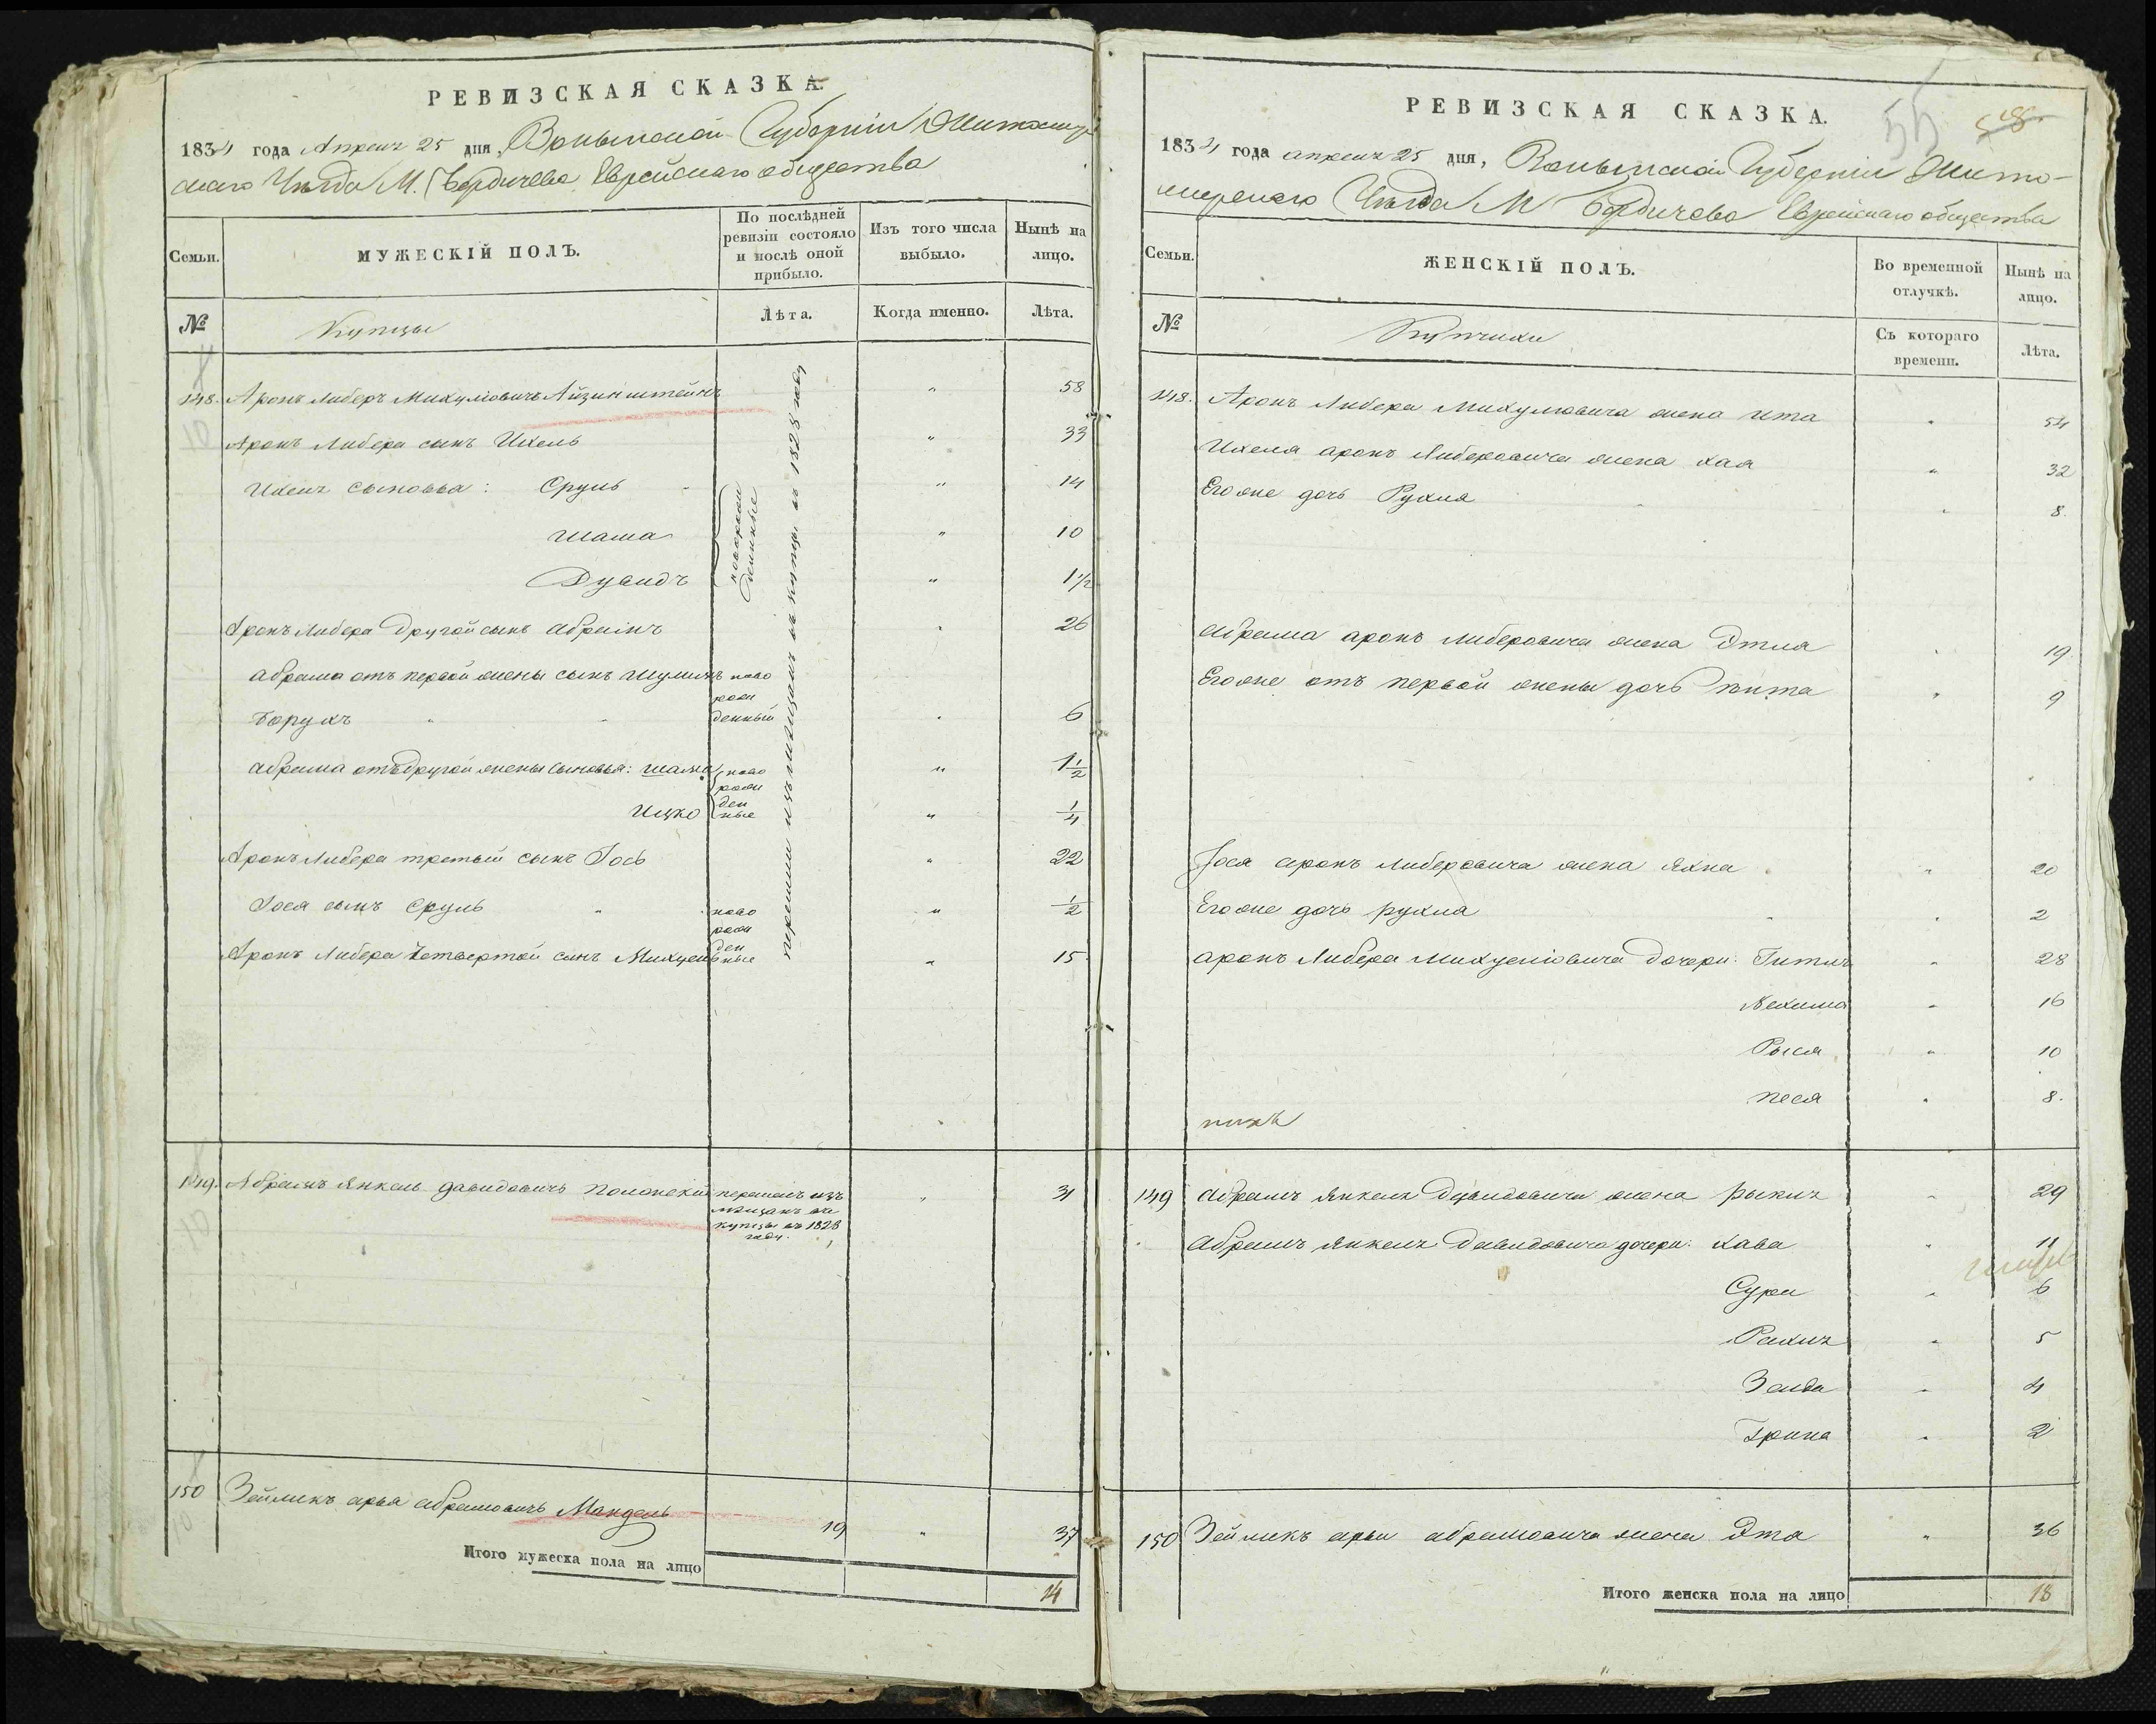 РЕВИЗСКАЯ СКАЗКА.
1834 года Апреля 25 дня, Волынской Губерніи Житомир
скаго Уѣзда М. Бердичева Еврейскаго общества
Семьи.
МУЖЕСКІЙ ПОЛЪ.
По послѣдней ревизіи состояло и послѣ оной прибыло.
Изъ того числа выбыло.
Нынѣ на лицо.
№
Купцы
Лѣта.
Когда именно.
Лѣта.
перешли изъ мещанъ въ купцы въ 1828 году
148. Аронъ Либеръ Михулiовичъ Айзинштейнъ " 58
Аронъ Либера сынъ Ихель " 33
Ихеля сыновья: Сруль " 14
Шама " 10
Дувидъ " 1 1/2
новорож
денные
Аронъ Либера другой сынъ Абрамъ " 26
Абрама отъ первой жены сынъ Шулимъ ново
рож
Борухъ " " денный " 6
Абрама отъ другой жены сыновья: Шама ново " 1 1/2
рож
Ицко ден " 1/4
ные
Аронъ Либера третій сынъ Іось " 22
Іося сынъ Сруль " ново " 1/2
рож
Аронъ Либера Четвертой сынъ Михуель ден " 15
ные
149. Абрамъ Янкель Давидовичъ Полонскій перешелъ изъ " 31
мещанъ въ
купцы въ 1828
году.
150 Зейликъ Арья Абрамовичъ Мандель 19 " 37
Итого мужеска пола на лицо
14
РЕВИЗСКАЯ СКАЗКА.
1834 года апреля 25 дня, Волынской Губерніи Жито-
мирскаго Уѣзда М Бердичева Еврейскаго общества
Семьи.
ЖЕНСКІЙ ПОЛЪ.
Во временной отлучкѣ.
Нынѣ на лицо.
№
Купчихи
Съ котораго времени.
Лѣта.
148. Аронъ Либера Михулiовича жена Ита " 54
Ихеля Аронъ Либеровича жена Хая " 32
Егоже дочь Рухля " 8.
Абрама Аронъ Либеровича жена Этля " 19.
Егоже отъ первой жены дочь " 9
Іося Аронъ Либеровича жена Яхна " 20
Егоже дочь Рухля " 2
Аронъ Либера Михуелiовича дочери: Гитля " 28
Нехима " 16
Рыся " 10
Песя " 8.
149 Абрамъ Янкеля Дувидовича жена Рыкля " 29
Абрамъ Янкеля Давидовича дочери: Хава " 11
Сура " 6
Рахля " 5
Зелда " 4
Грина " 2
150 Зейликъ Арьи Абрамовича жена Эта " 36
Итого женска пола на лицо
18